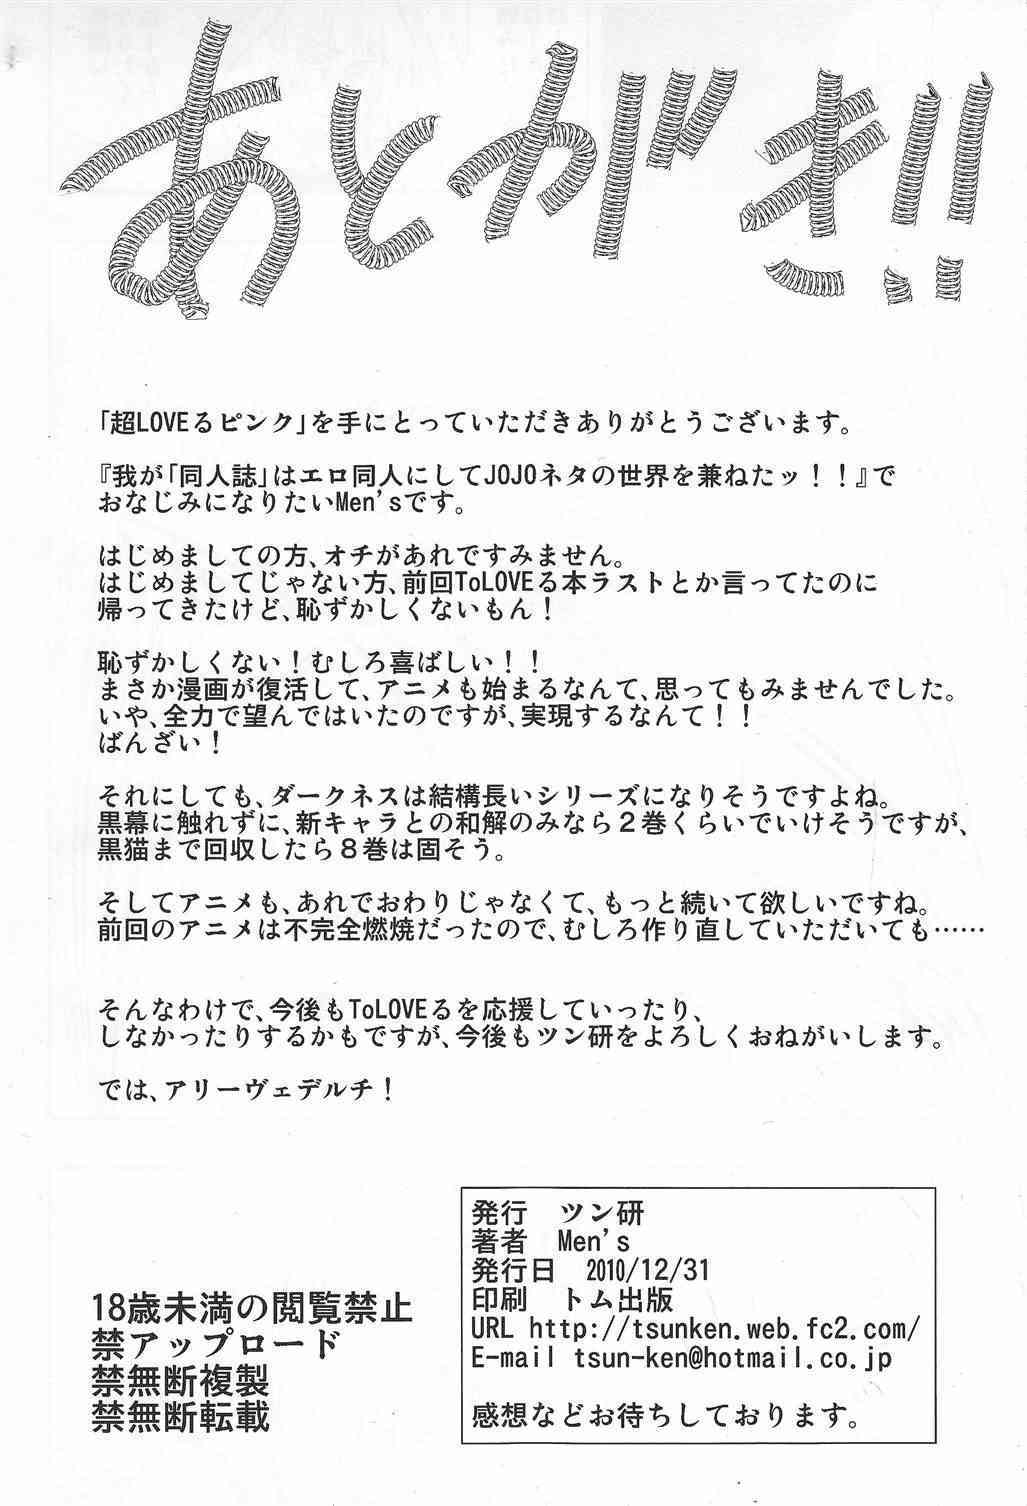 あとがき!!
「超LOVEるピンク」を手にとっていただきありがとうございます。
『我が「同人誌」はエロ同人にしてJOJOネタの世界を兼ねたッ！！』で
おなじみになりたいMen'sです。
はじめましての方、オチがあれですみません。
はじめましてじゃない方、前回ToLOVEる本ラストとか言ってたのに
帰ってきたけど、恥ずかしくないもん！
恥ずかしくない！むしろ喜ばしい！！
まさか漫画が復活して、アニメも始まるなんて、思ってもみませんでした。
いや、全力で望んではいたのですが、実現するなんて！！
ばんざい！
それにしても、ダークネスは結構長いシリーズになりそうですよね。
黒幕に触れずに、新キャラとの和解のみなら２巻くらいでいけそうですが、
黒猫まで回収したら８巻は固そう。
そしてアニメも、あれでおわりじゃなくて、もっと続いて欲しいですね。
前回のアニメは不完全燃焼だったので、むしろ作り直していただいても……
そんなわけで、今後もToLOVEるを応援していったり、
しなかったりするかもですが、今後もツン研をよろしくおねがいします。
では、アリーヴェデルチ！
18歳未満の閲覧禁止
禁アップロード
禁無断複製
禁無断転載
発行　ツン研
著者　Men's
発行日　2010/12/31
印刷　トム出版
URL http://tsunken.web.fc2.com/
E-mail tsun-ken@hotmail.co.jp
感想などお待ちしております。